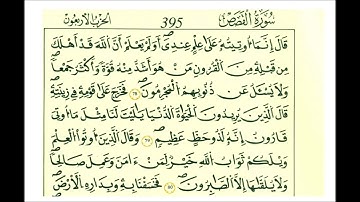 سُورَةُ الْقَصَصِ 395 الحزب الأربعون
قَالَ إِنَّمَا أُوتِيتُهُ عَلَىٰ عِلْمٍ عِندِيَ أَوَلَمْ يَعْلَمْ أَنَّ اللَّهَ قَدْ أَهْلَكَ
مِن قَبْلِهِ مِنَ الْقُرُونِ مَنْ هُوَ أَشَدُّ مِنْهُ قُوَّةً وَأَكْثَرُ جَمْعًا
وَلَا يُسْئَلُ عَن ذُنُوبِهِمُ الْمُجْرِمُونَ ٧٨ فَخَرَجَ عَلَىٰ قَوْمِهِ فِي زِينَتِهِ
قَالَ الَّذِينَ يُرِيدُونَ الْحَيَوٰةَ الدُّنْيَا يَٰلَيْتَ لَنَا مِثْلَ مَا أُوتِيَ
قَارُونُ إِنَّهُ لَذُو حَظٍّ عَظِيمٍ ٧٩ وَقَالَ الَّذِينَ أُوتُوا الْعِلْمَ
وَيْلَكُمْ ثَوَابُ اللَّهِ خَيْرٌ لِّمَنْ ءَامَنَ وَعَمِلَ صَالِحًا
وَلَا يُلَقَّىٰهَا إِلَّا الصَّابِرُونَ ٨٠ فَخَسَفْنَا بِهِ وَبِدَارِهِ الْأَرْضَ